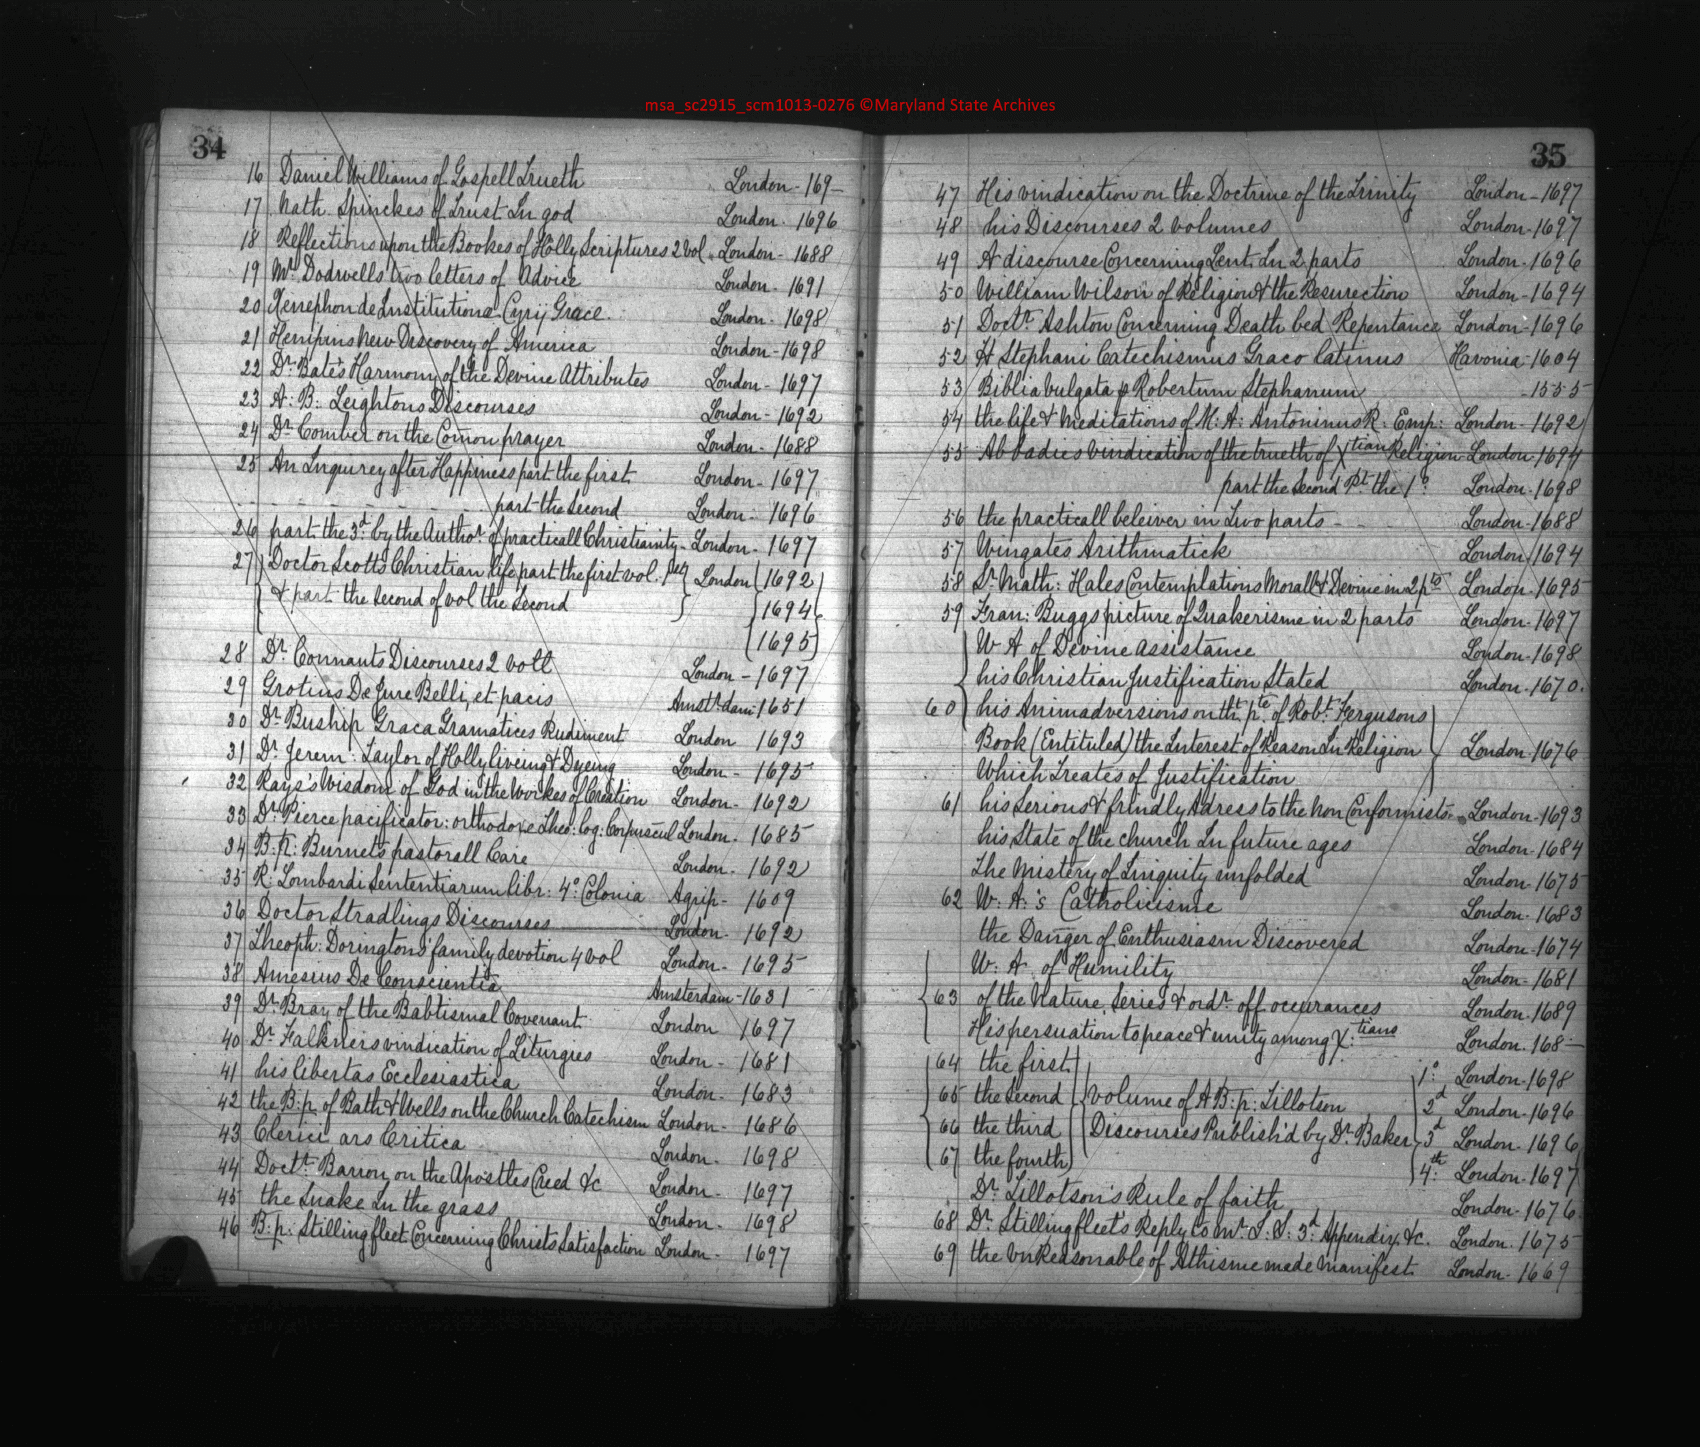 msa_sc2915_scm1013-0276 ©Maryland State Archives
34
16 Daniel Williams of Gospell Trueth London - 169-
17 Nath. Spinckes of Trust In god London - 1696
18 Reflections upon the Bookes of Holly Scriptures 2 Vol. London - 1688
19 Mr. Dodwells two letters of Advice London - 1691
20 Xenephon de Institutiona Cyrij Grace. London - 1698
21 Henipins New Discovery of America London - 1698
22 Dr. Bate's Harmony of the Devine Attributes London - 1697
23 A: B: Leightons Discourses London - 1692
24 Dr. Comber on the Comon prayer London - 1688
25 An Inquirey after Happiness part the first London - 1697
part the Second London - 1696
26 part the 3d by the Author. of practicall Christianity - London - 1697
27 Doctor Scotts Christian life part the first vol. London 1692
& part the Second of vol the Second 1694
1695
28 Dr. Connants Discourses 2 voll London - 1697
29 Grotius De Jure Belli, et pacis Amstrdam 1651
30 Dr. Buship Graca Gramatices Rudiment London 1693
31 Dr. Jerem: Taylor of Holly liveing & Dyeing London - 1695
32 Rays's Wisdom of God in the Workes of Creation London - 1692
33 Dr. Pierce pacificator: orthodoxe Theo: log: Corpuscul London. 1685
34 B:p: Burnets pastorall Care London - 1692
35 P: Lombardi Sententiarum libr: 4o: Colonia Agrip - 1609
36 Doctor Stradlings Discourses London - 1692
37 Theoph: Doringtons family devotion 4 vol London - 1695
38 Amesius De Conscientia Amsterdam - 1631
39 Dr. Bray of the Babtismal Covenant London 1697
40 Dr. Falkners vindication of Liturgies London - 1681
41 his libertas Ecclesiastica London - 1683
42 the B:p. of Bath & Wells on the Church Catechism London - 1686
43 Clerici ars Critica London - 1698
44 Doctr. Barron on the Apostles Creed &c London - 1697
45 the Snake In the grass London - 1698
46 B:p: Stillingfleet Concerning Christs Satisfaction London - 1697
35
47 His vindication on the Doctrine of the Trinity London - 1697
48 his Discourses 2 volumes London - 1697
49 A discourse Concerning Lent In 2 parts London - 1696
50 William Wilson of Religion & the Resurection London - 1694
51 Doctr. Ashton Concerning Death bed Repentance London - 1696
52 H Stephani Catechismus Graco latinus Havonia - 1604
53 Biblia vulgata p Robertum Stephanum - 1555
54 the life & Meditations of M: A: Antoninus R: Emp: London - 1692
55 Abbadies vindication of the trueth of Xtian Religion London - 1694
part the Second Pt. the 1o London - 1698
56 the practicall beleiver in Two parts - London - 1688
57 Wingates Arithmatick London 1694
58 Sr. Math: Hales Contemplations Morall & Devine in 2 pts London - 1695
59 Fran: Buggs picture of Quakerisme in 2 parts London - 1697
W A of Devine assistance London - 1698
his Christian Justification Stated London - 1670.
60 his Animadversions on tht pte. of Robt. Fergusons
Book (Entituled) the Interest of Reason In Religion London - 1676
Which Treates of Justification
61 his Serious & frindly Adress to the Non Conformists. London - 1693
his State of the church In future ages London - 1684
The Mistery of Iniquity unfolded London - 1675
62 W: A:'s Catholicisme London - 1683
the Danger of Enthusiasm Discovered London - 1674
W: A. of Humility London - 1681
63 of the Nature, Series & ordr. off occurances London - 1689
His persuation to peace & unity among X:tians London. 168-
64 the first 1o: London - 1698
65 the Second volume of A B:p: Tillotson 2d London - 1696
66 the third Discourses Publish'd by Dr. Baker 3d London - 1696
67 the fourth 4th: London - 1697
Dr. Tillotson's Rule of faith London - 1676
68 Dr. Stillingfleet's Reply to Mr. I. S: 3d: Appendix &c. London. 1675
69 the UnReasonable of Athisme made Manifest London - 1669